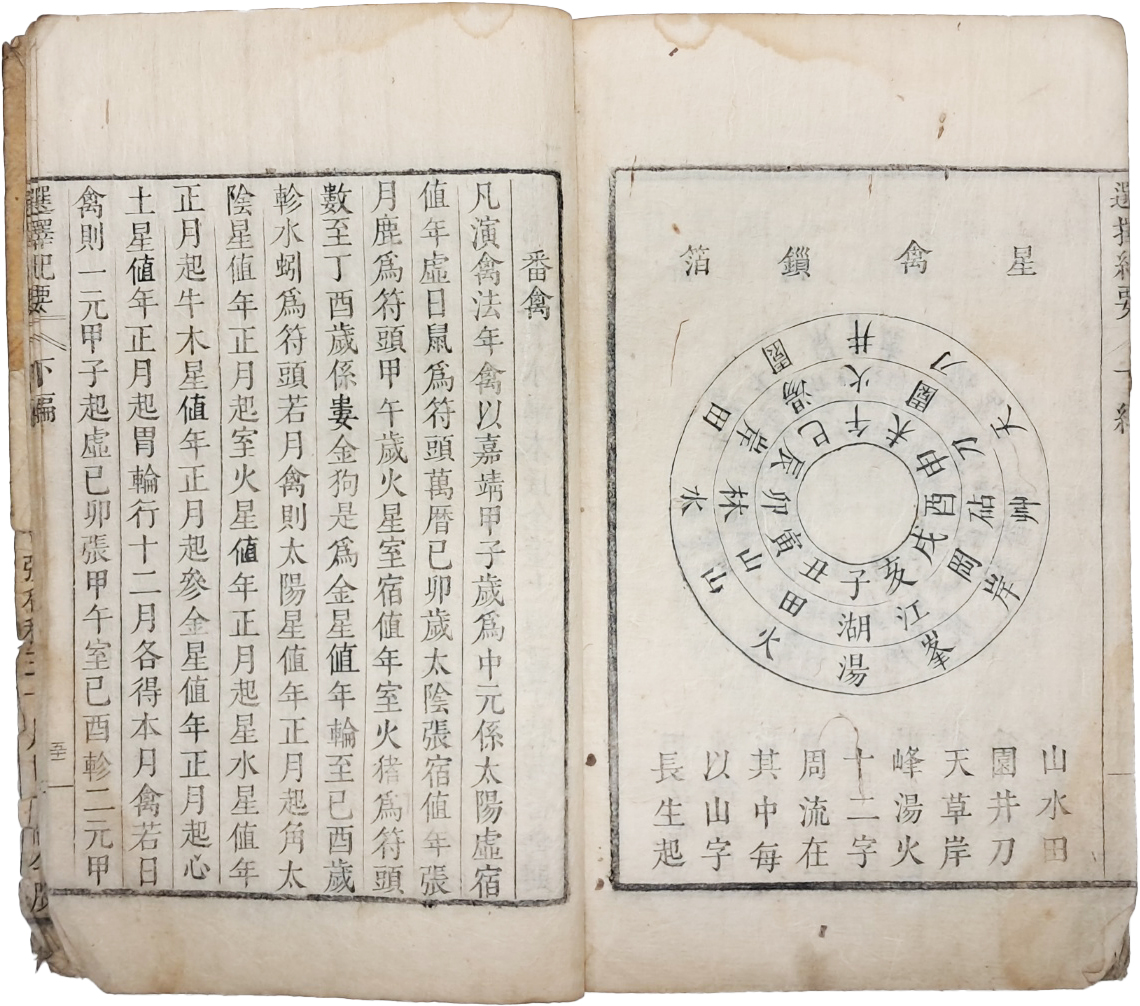 星禽鎖箔
子丑寅卯辰巳午未申酉戌亥
湖田山林湯火園刀砧岡江
湯火山水田園井刀天艸岸峯
山水田
園井刀
天草岸
峰湯火
十二字
周流在
其中每
以山字
長生起
番禽
凡演禽法年禽以嘉靖甲子歲爲中元係太陽虛宿
值年虛日鼠爲符頭萬曆已卯歲太陰張宿值年張
月鹿爲符頭甲午歲火星室宿值年室火猪爲符頭
數至丁酉歲係婁金狗是爲金星值年輪至已酉歲
軫水蚓爲符頭若月禽則太陽星值年正月起角太
陰星值年正月起室火星值年正月起星水星值年
正月起牛木星值年正月起參金星值年正月起心
土星值年正月起胃輪行十二月各得本月禽若日
禽則一元甲子起虛已卯張甲午室已酉軫二元甲
選擇紀要 下編